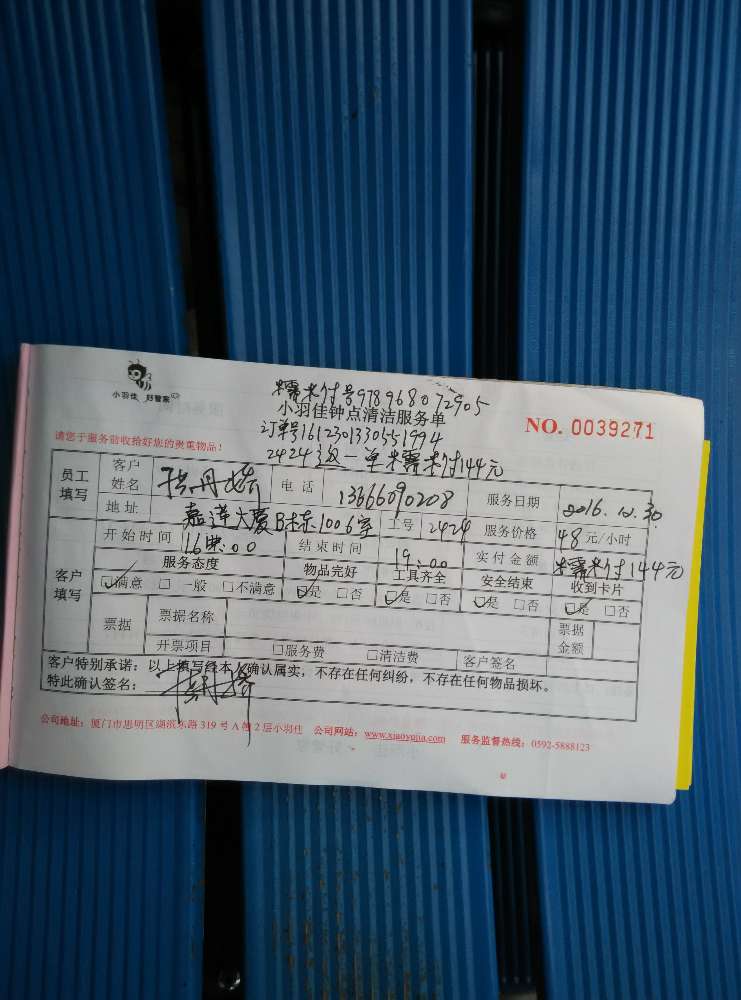 小羽佳 好管家
糯米付号978968072905
小羽佳钟点清洁服务单
NO. 0039271
订单号1612301330551994
请您于服务前收拾好您的贵重物品!
2424 一单糯米付144元
员工填写 客户姓名 丹 电话 13666090208 服务日期 2016.12.30
地址 嘉莲大厦B栋1006室 工号 2424 服务价格 48元/小时
客户填写 开始时间 16:00 结束时间 19:00 实付金额 糯米付144元
服务态度 物品完好 工具齐全 安全结束 收到卡片
☑满意 □一般 □不满意 ☑是 □否 ☑是 □否 ☑是 □否 ☑是 □否
票据 票据名称 票据金额
开票项目 □服务费 □清洁费 客户签名
客户特别承诺:以上填写经本人确认属实,不存在任何纠纷,不存在任何物品损坏。
特此确认签名:
公司地址:厦门市思明区湖滨东路319号A幢2层小羽佳 公司网站:www.xiaoyujia.com 服务监督热线:0592-5888123